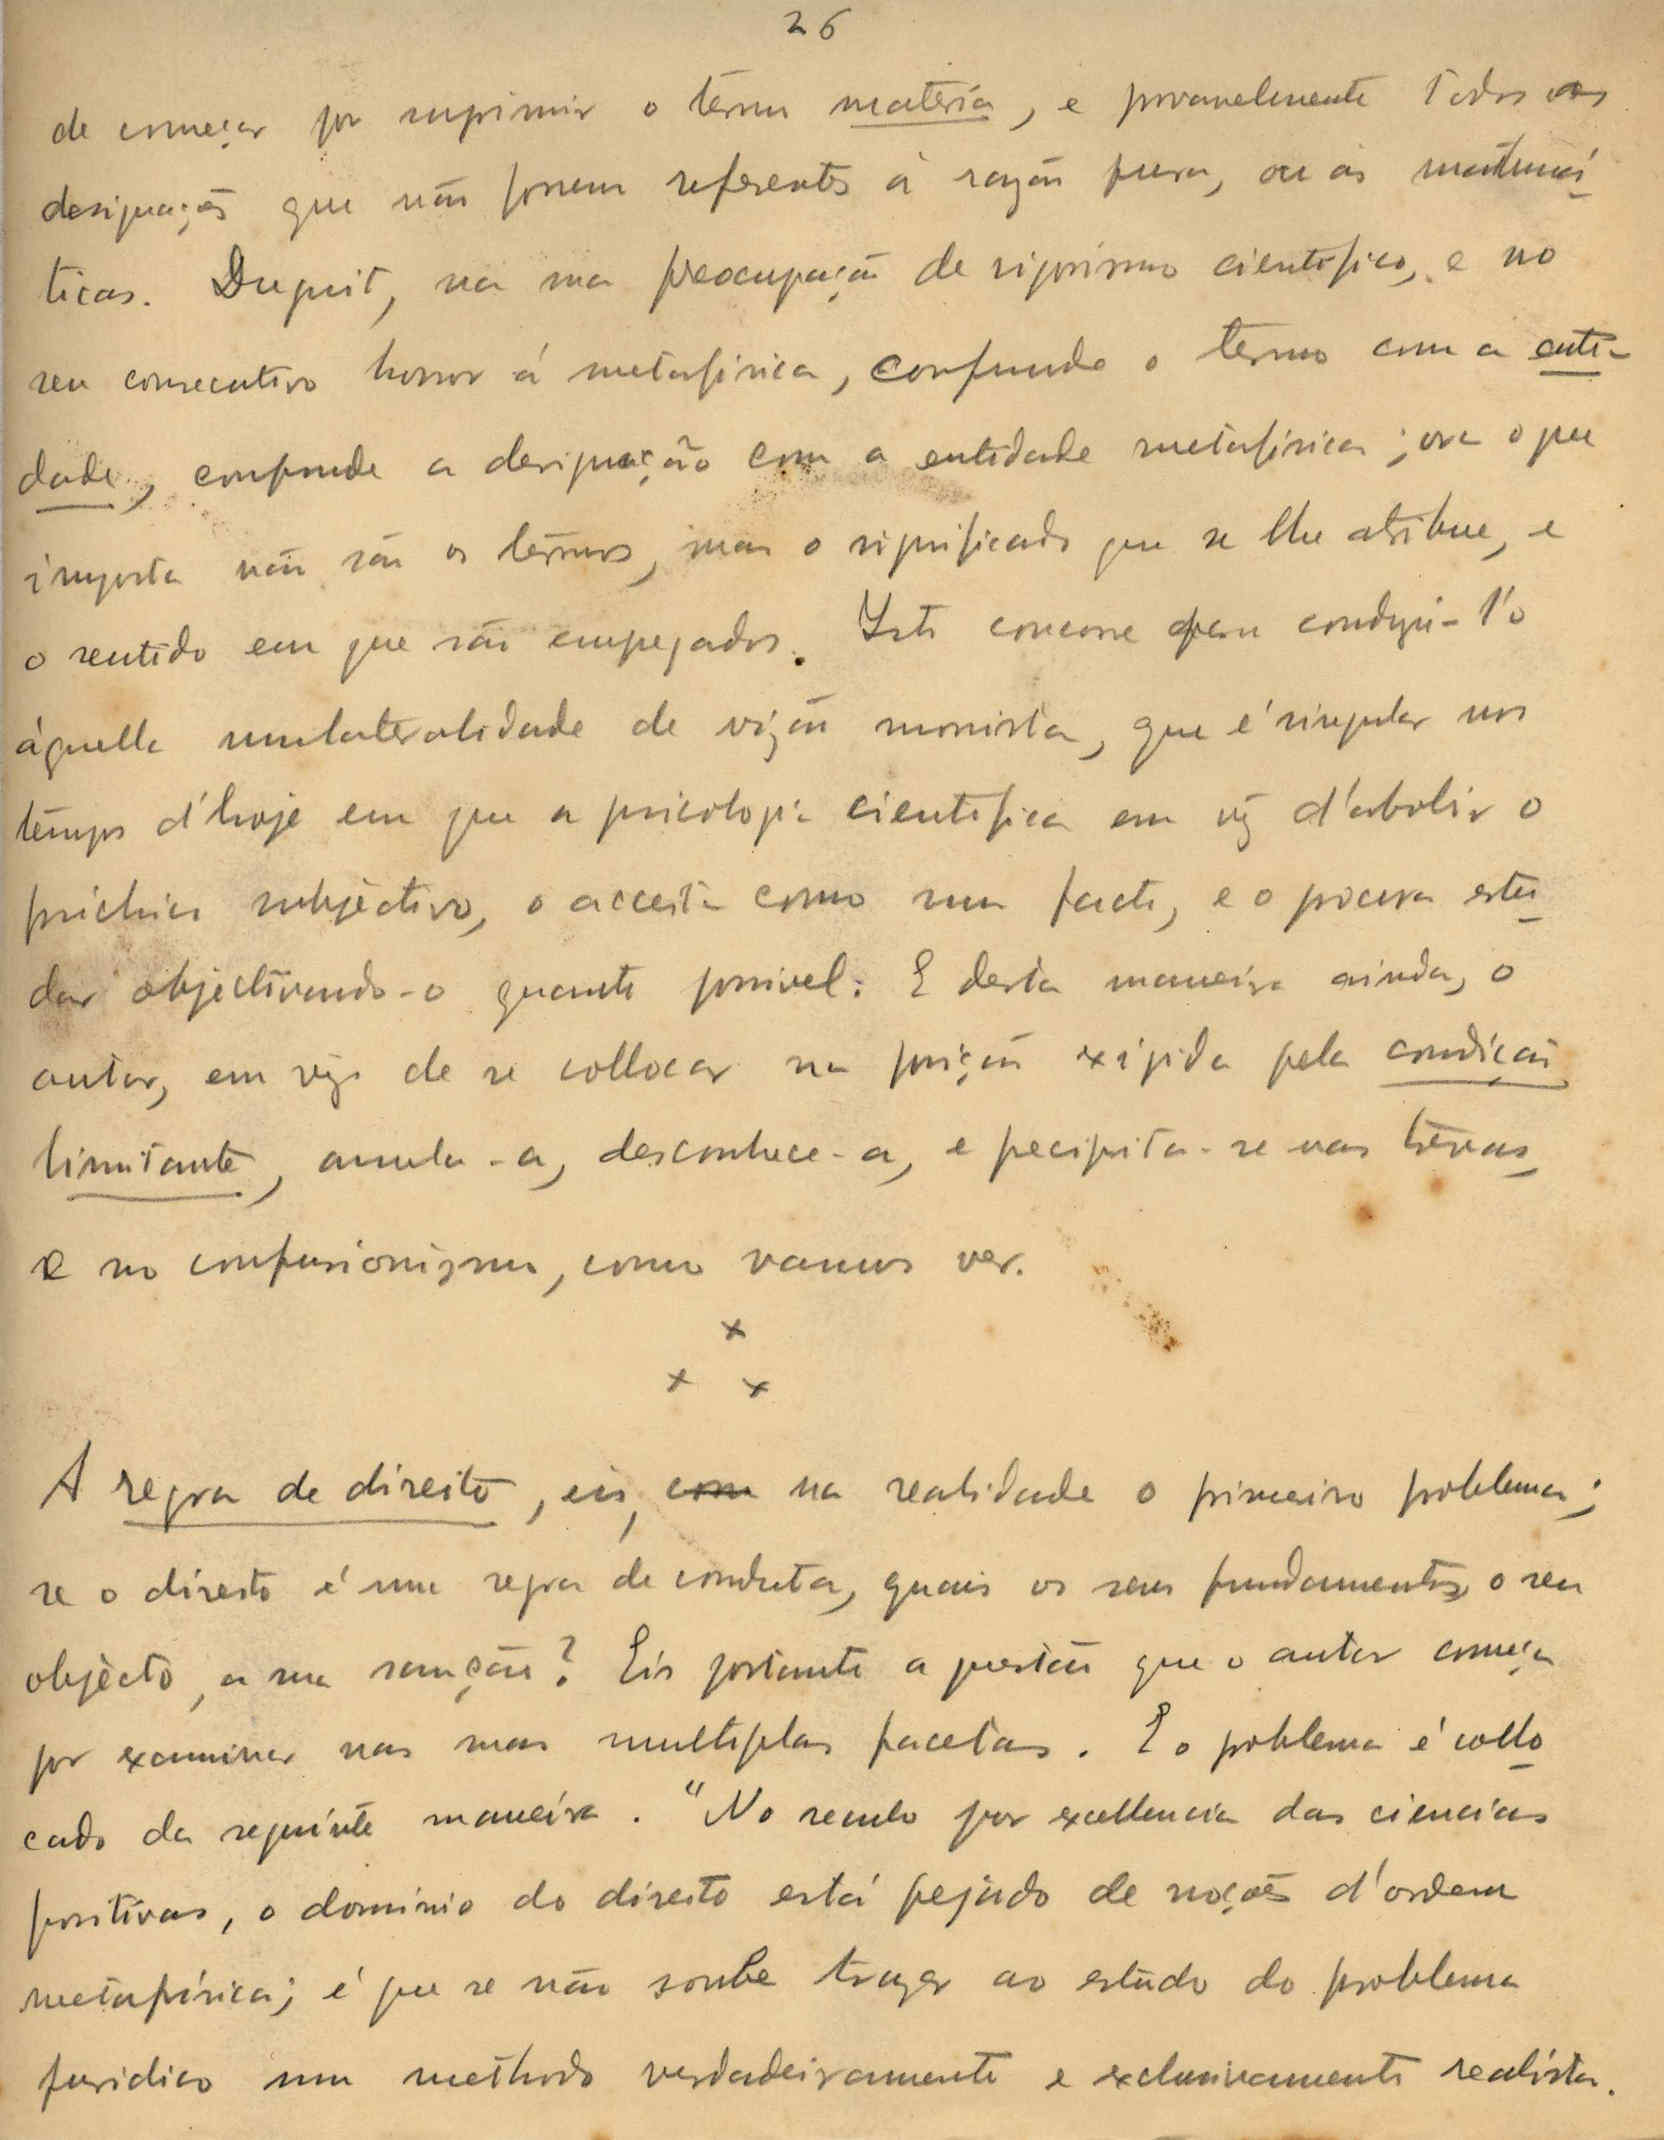 26
de começar por suprimir o termo materia, e provavelmente todas as
designações que não fossem referentes á razão pura, ou ás mathemá-
ticas. Duguit, na sua preocupação de rigorismo cientifico, e no
seu consecutivo horror á metafisica, confunde o termo com a enti-
dade, confunde a designação com a entidade metafisica; ora o que
importa não são os têrmos, mas o significado que se lhe atribue, e
o sentido em que são empregados. Isto concorre para conduzi-l'o
áquella unilateralidade de vizão monista, que é singular nos
tempos d'hoje em que a psicologia cientifica em vêz d'abolir o
psichico subjectivo, o acceita como um facto, e o procura estu-
dar objectivando-o quanto possivel. E desta maneira ainda, o
autor, em vez de se collocar na posição exigida pela condição
limitante, anula-a, desconhece-a, e precipita-se nas trévas,
e no confusionismo, como vamos ver.
x
x x
A regra de direito, eis, com na realidade o primeiro problema;
se o direito é uma regra de conduta, quais os seus fundamentos, o seu
objecto, a sua sanção? Eis portanto a questão que o autor começa
por examinar nas suas multiplas facetas. E o problema é collo-
cado da seguinte maneira. "No seculo por excellencia das ciencias
positivas, o dominio do direito está pejado de noções d'ordem
metafisica; é que se não soube trazer ao estudo do problema
juridico um methodo verdadeiramente e exclusivamente realista.